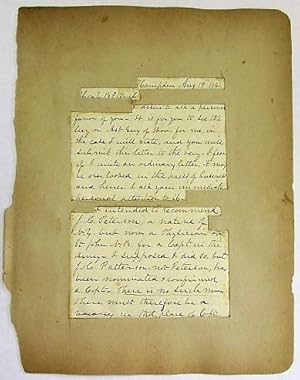 Hampden Aug 19 186
I desire to ask a personal
favor of you - It is for you to see the
Secy or Asst Secy of State, for me, in
the case I will state, and you will
submit this letter to the Secy. After
if I write an ordinary letter, it may
be overlooked in the press of business
and hence I ask your immediate
personal attention to it.
I intended to recommend
J. C. Peterson, a native of
but now a Physician at
St John N.B. for a Capt in the
army & I supposed I did so, but
J. C. Patterson, not Peterson, has
been nominated & confirmed
a Capt. There is no such man
There must therefore be a
vacancy in the place of Capt.